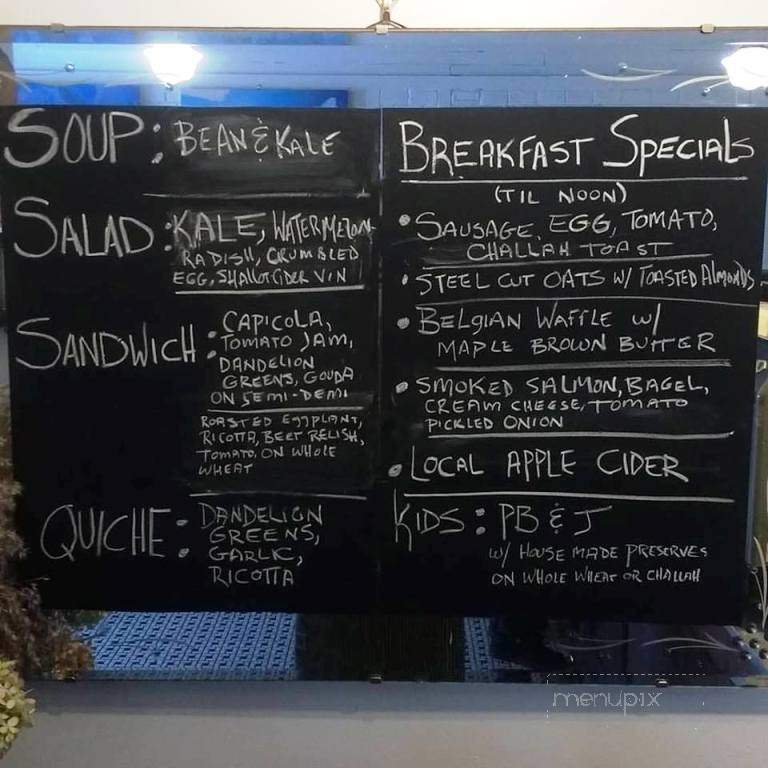 SOUP: BEAN & KALE
SALAD: KALE, WATERMELON
RADISH, CRUMBLED
EGG, SHALLOT CIDER VIN
SANDWICH: CAPICOLA,
TOMATO JAM,
DANDELION
GREENS, GOUDA
ON SEMI-DEMI
ROASTED EGGPLANT,
RICOTTA, BEET RELISH,
TOMATO, ON WHOLE
WHEAT
QUICHE: DANDELION
GREENS,
GARLIC,
RICOTTA
BREAKFAST SPECIALS
(TIL NOON)
• SAUSAGE, EGG, TOMATO,
CHALLAH TOAST
• STEEL CUT OATS W/ TOASTED ALMONDS
• BELGIAN WAFFLE W/
MAPLE BROWN BUTTER
• SMOKED SALMON, BAGEL,
CREAM CHEESE, TOMATO
PICKLED ONION
• LOCAL APPLE CIDER
KIDS: PB & J
W/ HOUSE MADE PRESERVES
ON WHOLE WHEAT OR CHALLAH
menupix